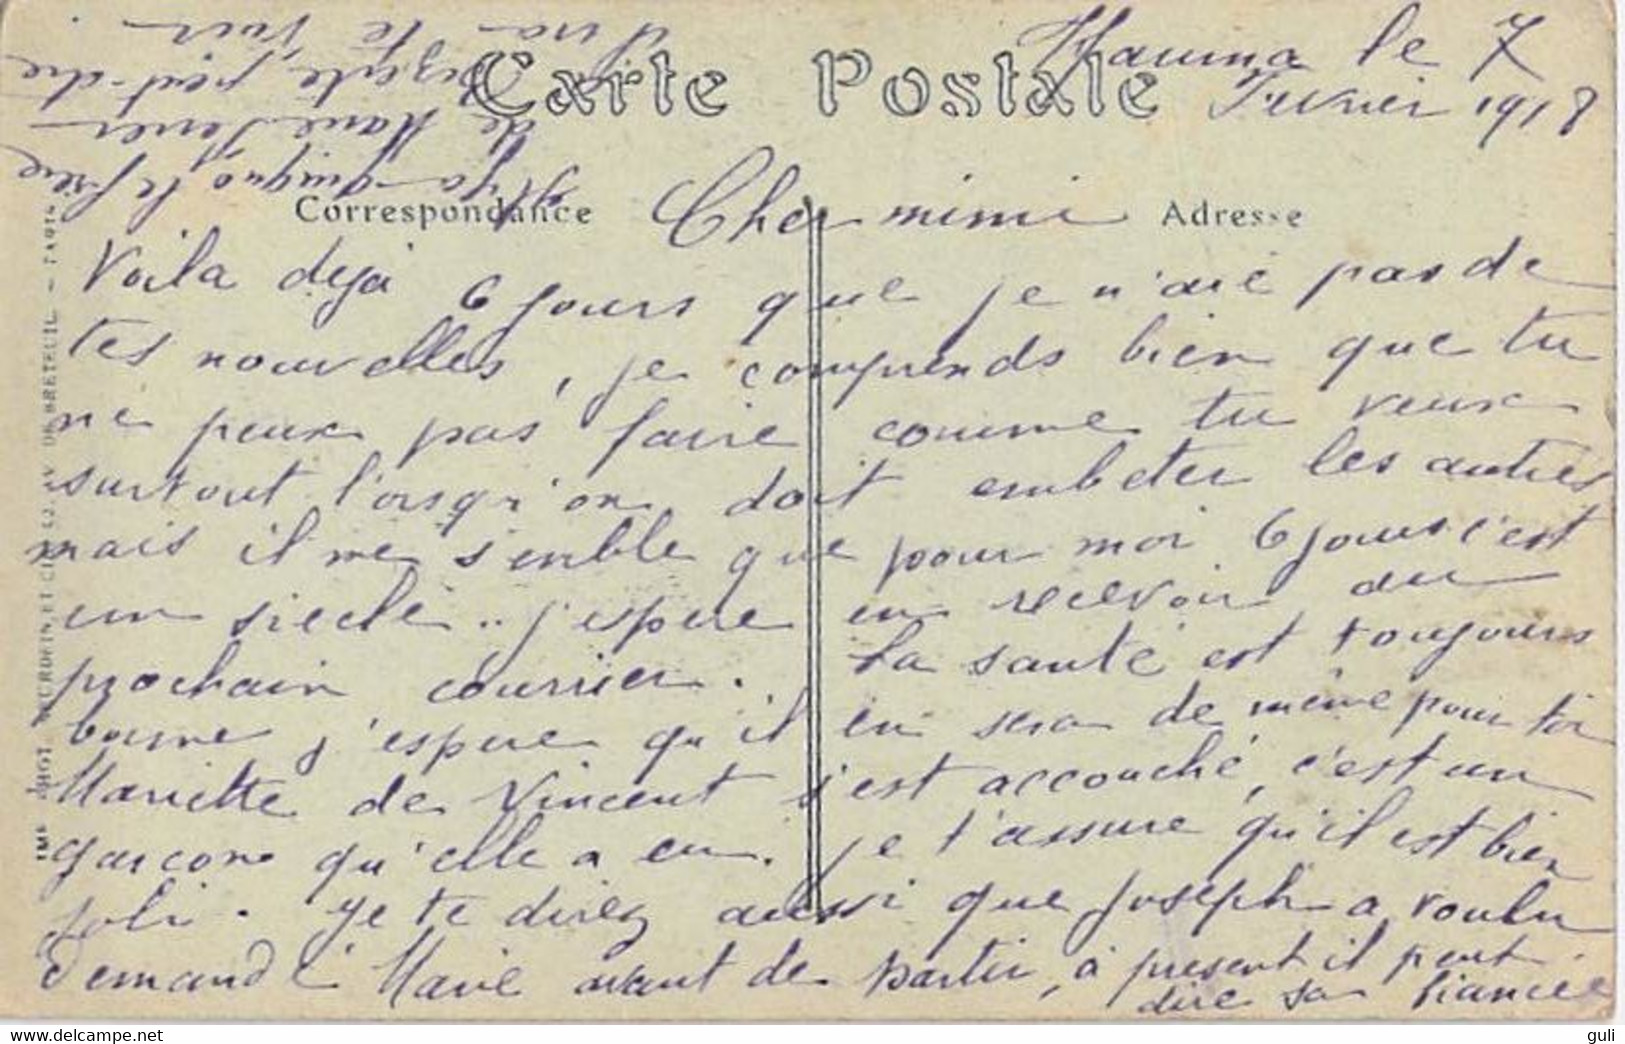 Carte Postale
le 7
Fevrier 1918
Correspondance
Adresse
Cher mimi
Voila deja 6 jours que je n'aie pas de
tes nouvelles, je comprends bien que tu
ne peux pas faire comme tu veux
surtout l'orsqu'on doit embeter les autres
mais il me s'emble que pour moi 6 jours c'est
un siecle.. j'espere en recevoir au
prochain courrier. La santé est toujours
bonne j'espere qu'il en sera de même pour toi
Mariette de Vincent s'est accouché, c'est un
garcon qu'elle a eu. je t'assure qu'il est bien
joli. je te direz aussi que Joseph a voulu
demandé Marie avant de partir, à present il peut
dire sa fiancée
le frere
de Marie
peut-etre
te voir
IMP. PHOT. NEURDEIN ET CIE. 52, AV. DE BRETEUIL. — PARIS
guli